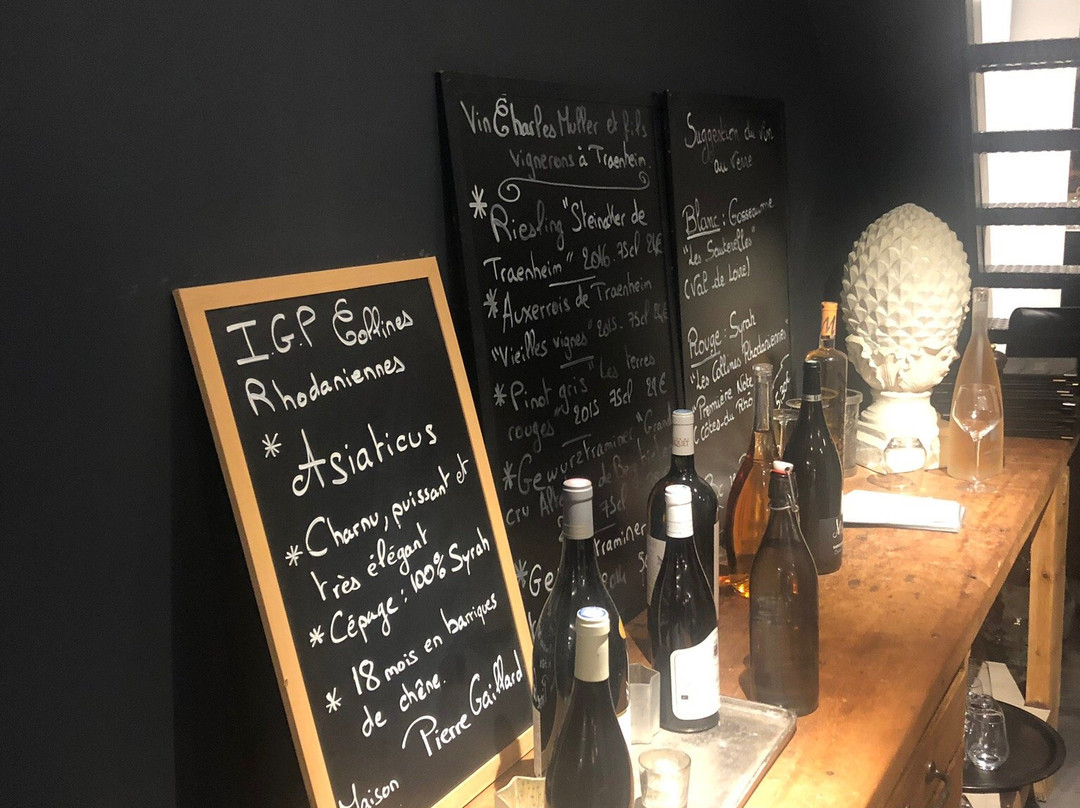 I.G.P Collines
Rhodaniennes
* Asiaticus
* Charnu, puissant et
très élégant
* Cépage : 100% Syrah
* 18 mois en barriques
de chêne.
Pierre Gaillard
Maison
Vin Charles Muller et fils
vignerons à Traenheim
* Riesling "Steinkler de
Traenheim" 2016 . 75cl
* Auxerrois de Traenheim
"Vieilles vignes" 2015 . 75cl
* Pinot gris "Les terres
rouges" 2015 75cl 29€
* Gewurztraminer "Grand
cru
75cl
* Ge
traminer
Suggestion du vin
au verre
Blanc :
(Val de Loire)
Rouge : Syrah
"Les Collines Rhodaniennes"
"Première Note
(Côtes-du Rhô